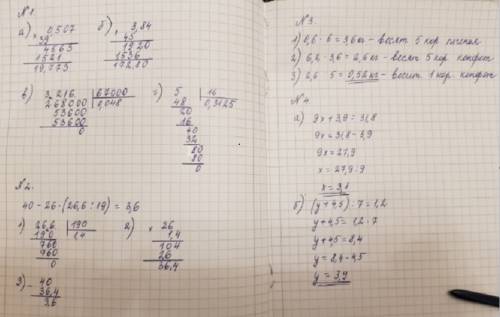 №1.
а) × 0,507
39
4563
1521
19,773
б) × 3,84
45
1920
1536
172,80
в) 3,216 | 67000
268000 | 0,048
536000
536000
0
г) 5 | 16
48 | 0,3125
20
16
40
32
80
80
0
№2.
40 - 26 · (26,6 : 19) = 3,6
1) 26,6 | 190
190 | 1,4
760
760
0
2) × 26
1,4
104
26
36,4
3) - 40
36,4
3,6
№3.
1) 0,6 · 6 = 3,6 кг - весят 5 кор. печенья
2) 6,2 - 3,6 = 2,6 кг - весят 5 кор. конфет
3) 2,6 : 5 = 0,52 кг - весит 1 кор. конфет
№4
а) 9x + 3,9 = 31,8
9x = 31,8 - 3,9
9x = 27,9
x = 27,9 : 9
x = 3,1
б) (y + 4,5) : 7 = 1,2
y + 4,5 = 1,2 · 7
y + 4,5 = 8,4
y = 8,4 - 4,5
y = 3,9